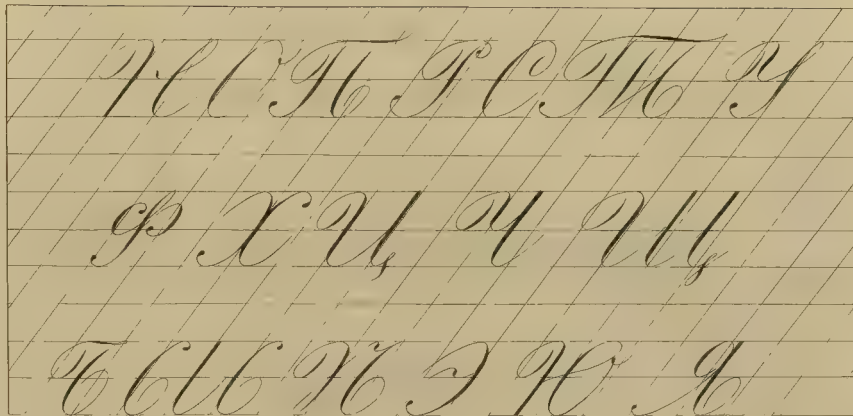 Н О П Р С Т У
Ф Х Ц Ч Щ
Э Ю Я